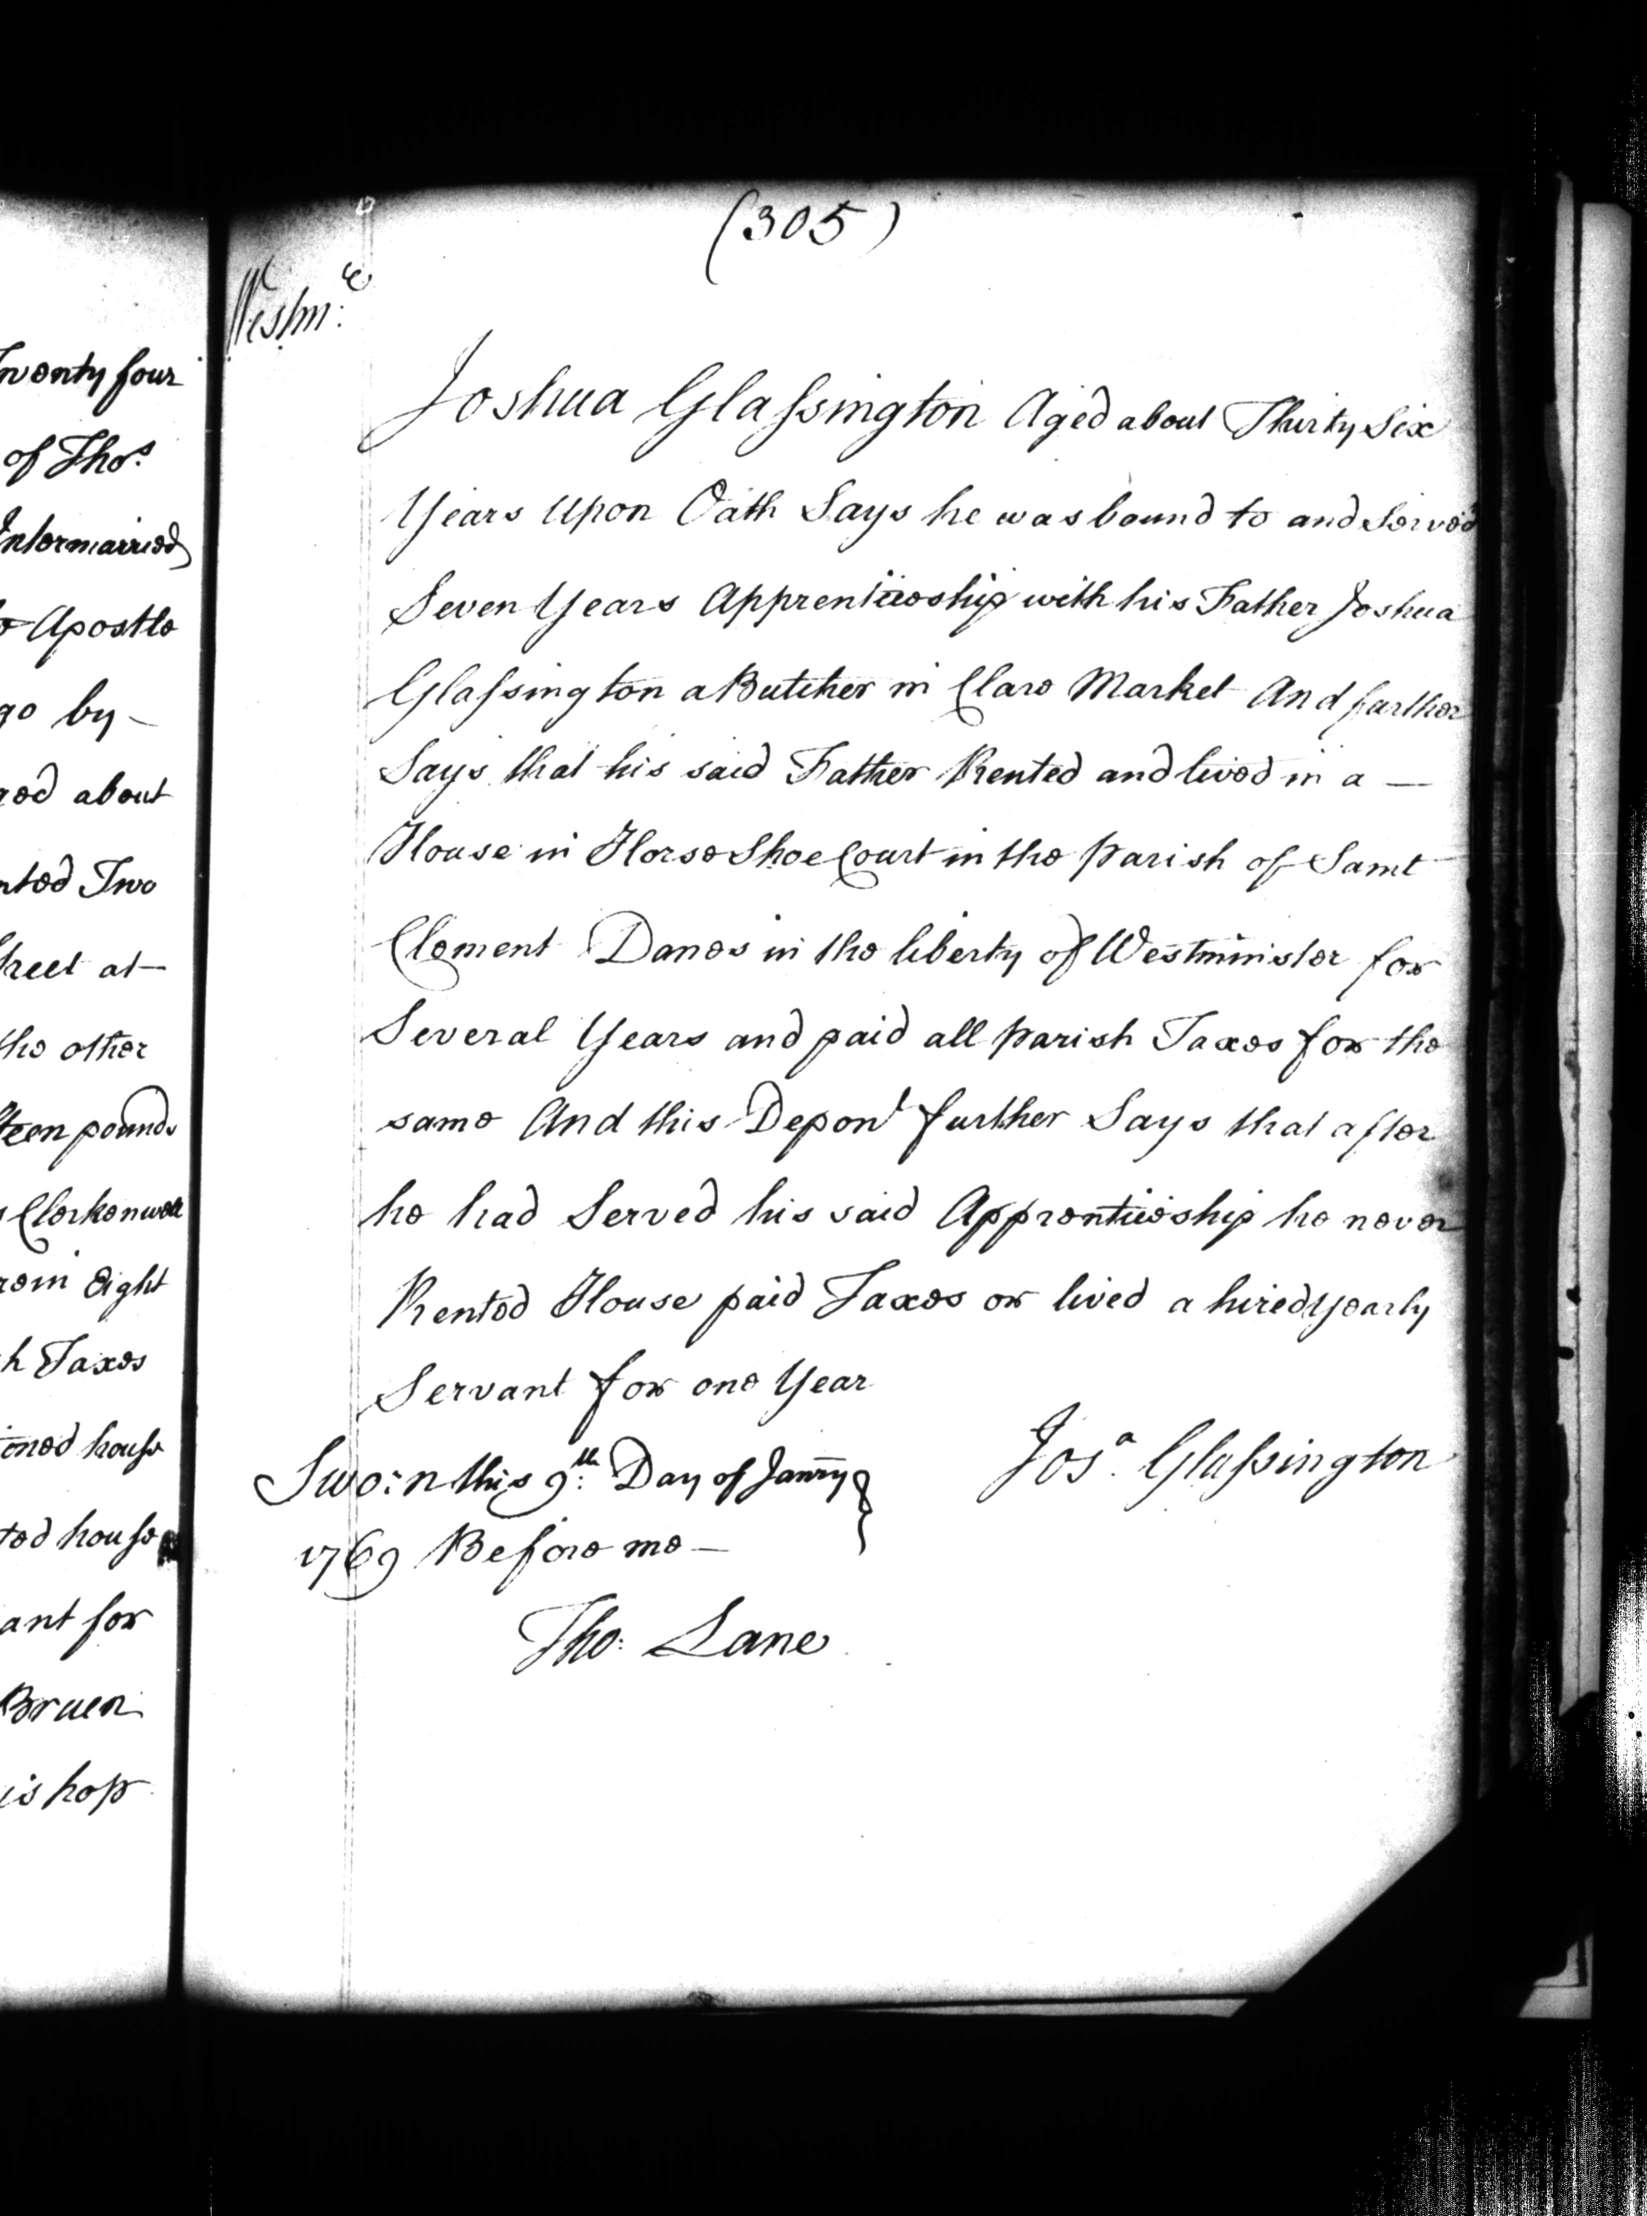 (305)
Westm:r
Joshua Glaſsington Aged about Thirty Six
Years Upon Oath Says he was bound to and Served
Seven Years Apprenticeship with his Father Joshua
Glaſsington a Butcher in Clare Market And further
Says that his said Father Rented and lived in a —
House in Horse Shoe Court in the parish of Saint
Clement Danes in the liberty of Westminster for
Several Years and paid all parish Taxes for the
same And this Depont further Says that after
he had Served his said Apprenticeship he never
Rented House paid Taxes or lived a hired Yearly
Servant for one Year
Sworn this 9:th Day of Janry
1769 Before me —
Josa. Glaſsington
Tho: Lane
wenty four
of Thos.
Intermarried
Apostle
go by —
about
Two
at —
the other
teen pounds
Clerkenwell
Eight
h Taxes
houſe
ted houſe
ant for
Bruen
ishop